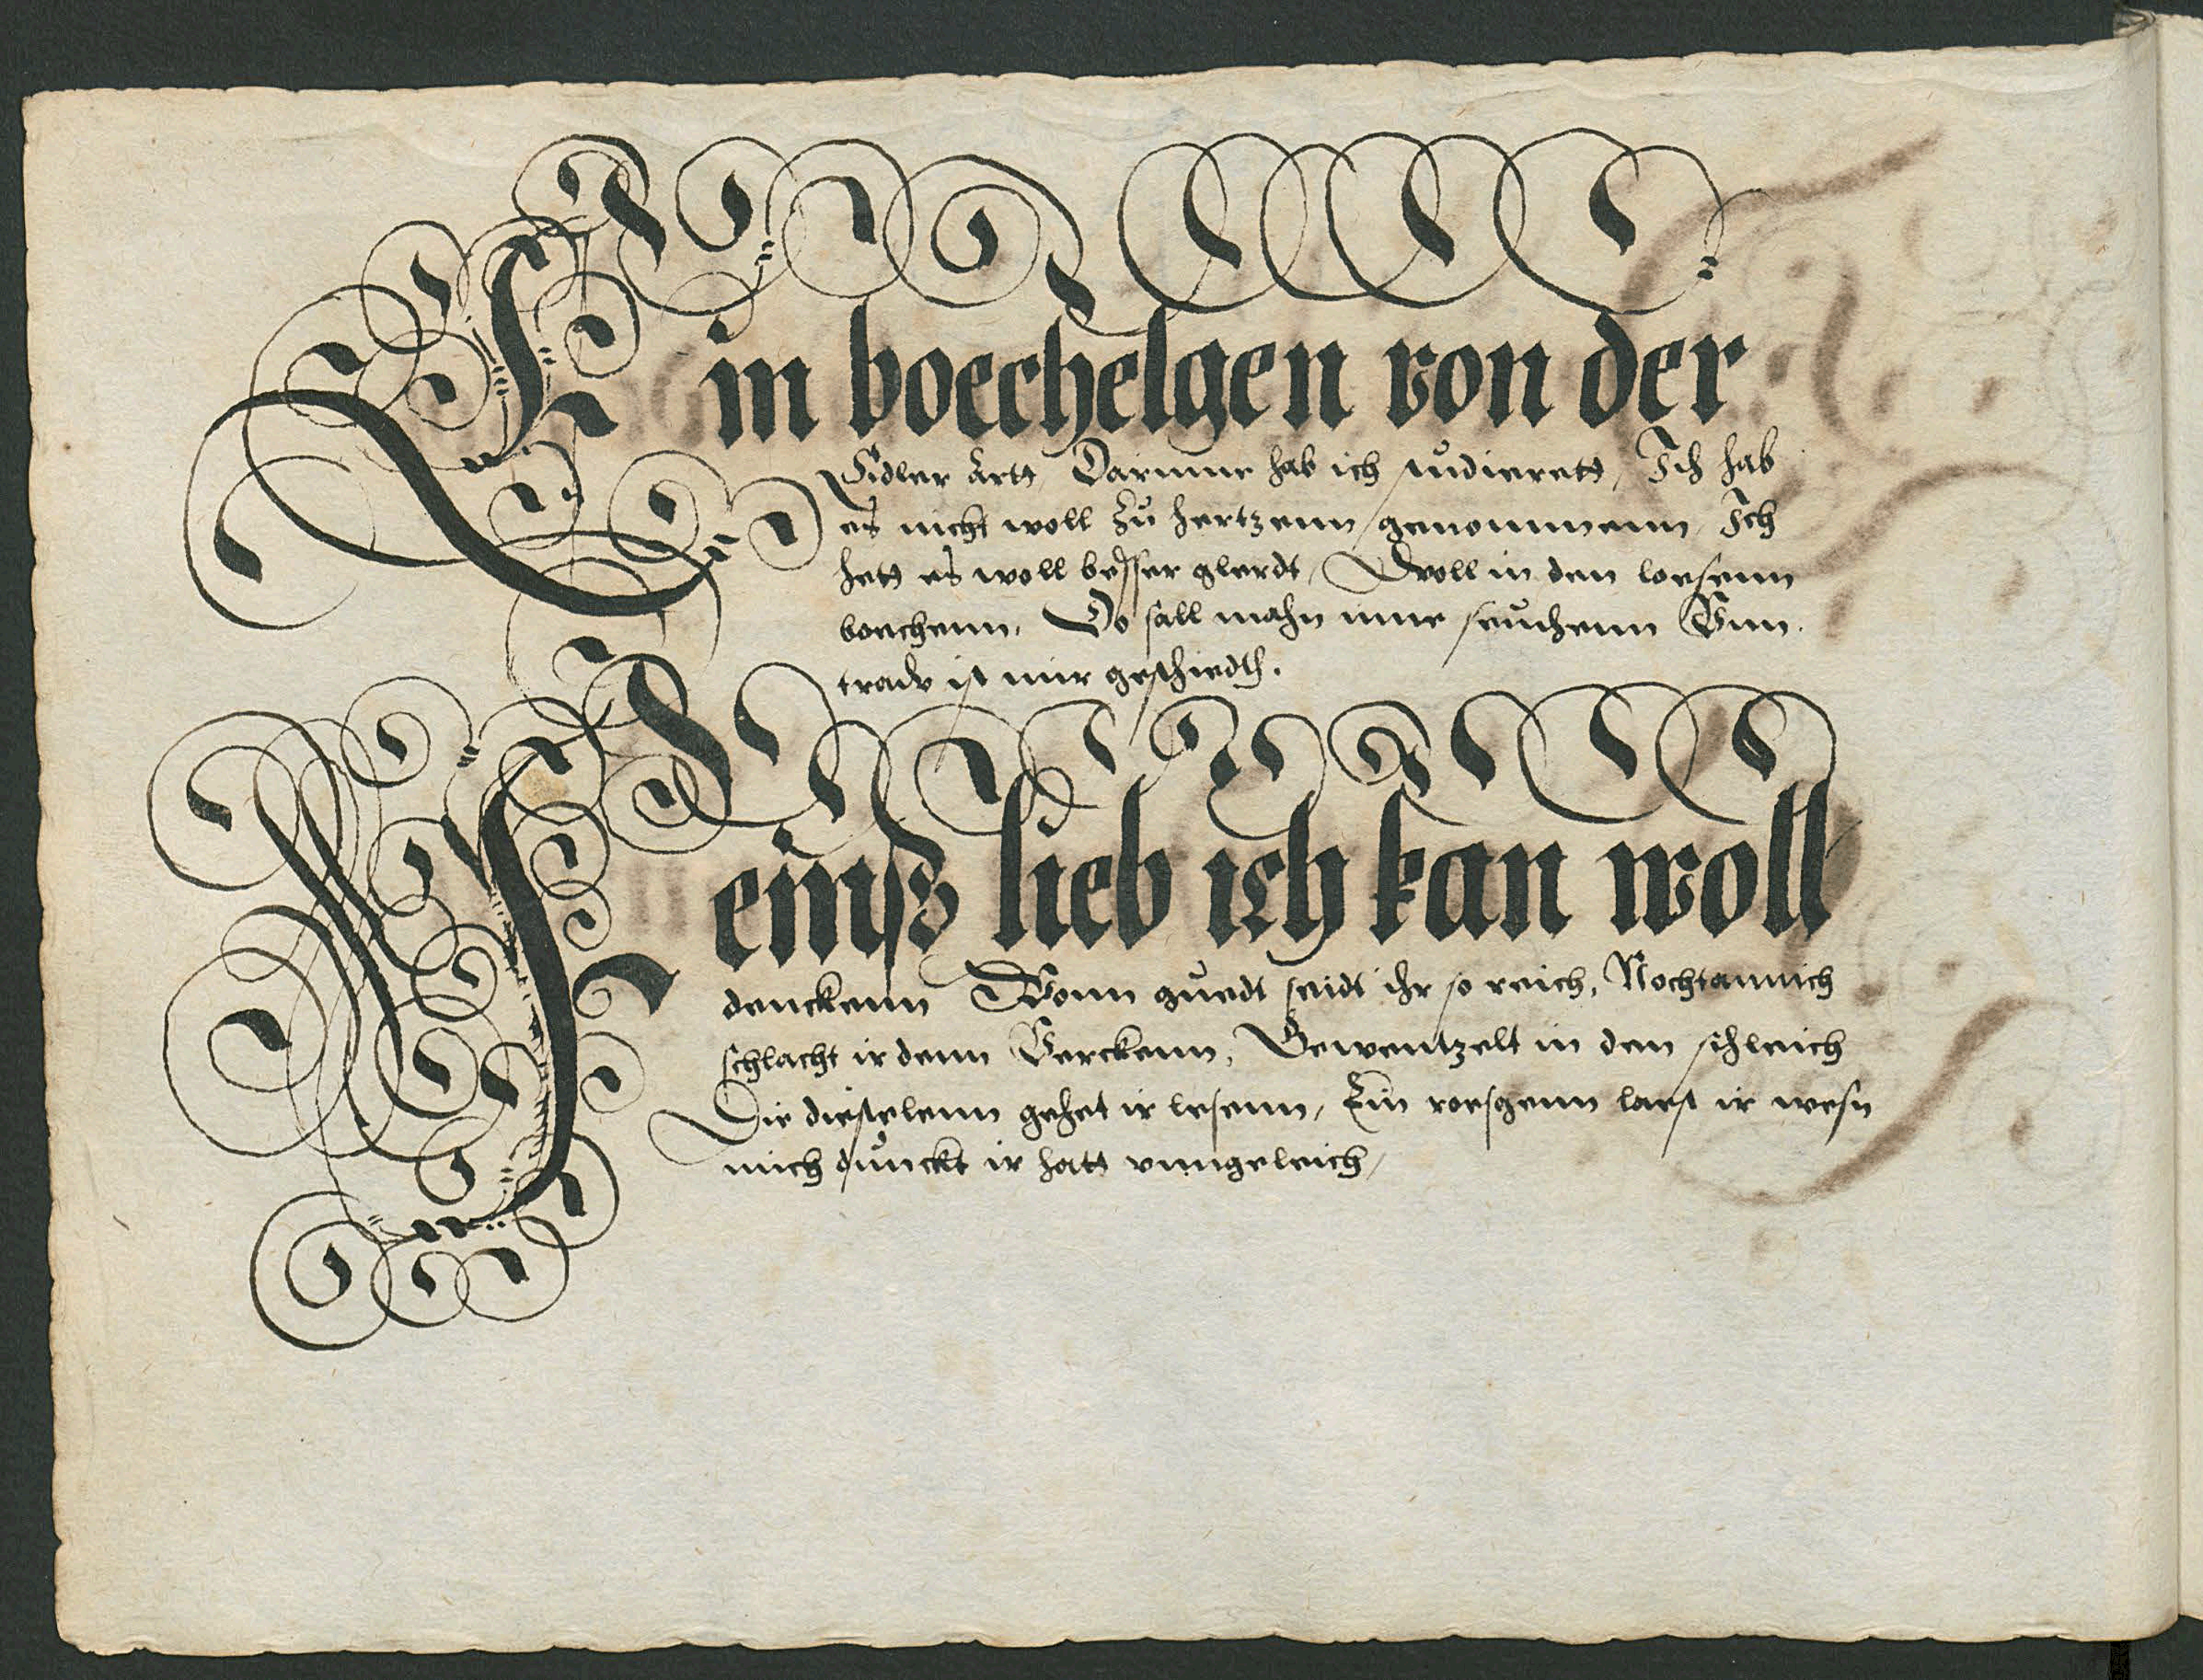 Ein boechelgen von der
Sidler artt, Darinne hab ich studierett, Ich hab
es nicht woll zu hertzenn genommenn, Ich
hett es woll besser glerdt, Woll in den loesenn
boechenn, Do sall mahn inne seuchenn Vnn.
trade ist mir geschiedth.
Feinß lieb ich kan woll
denckenn Vonn guedt seidt ihr so reich, Nochtannich
schlacht ir denn Verckenn, Gewentzelt in den schleich
Die diestelenn gehet ir lesenn, Ein roesgenn laest ir wesn
mich dunckt ir hatt vnngeleich,